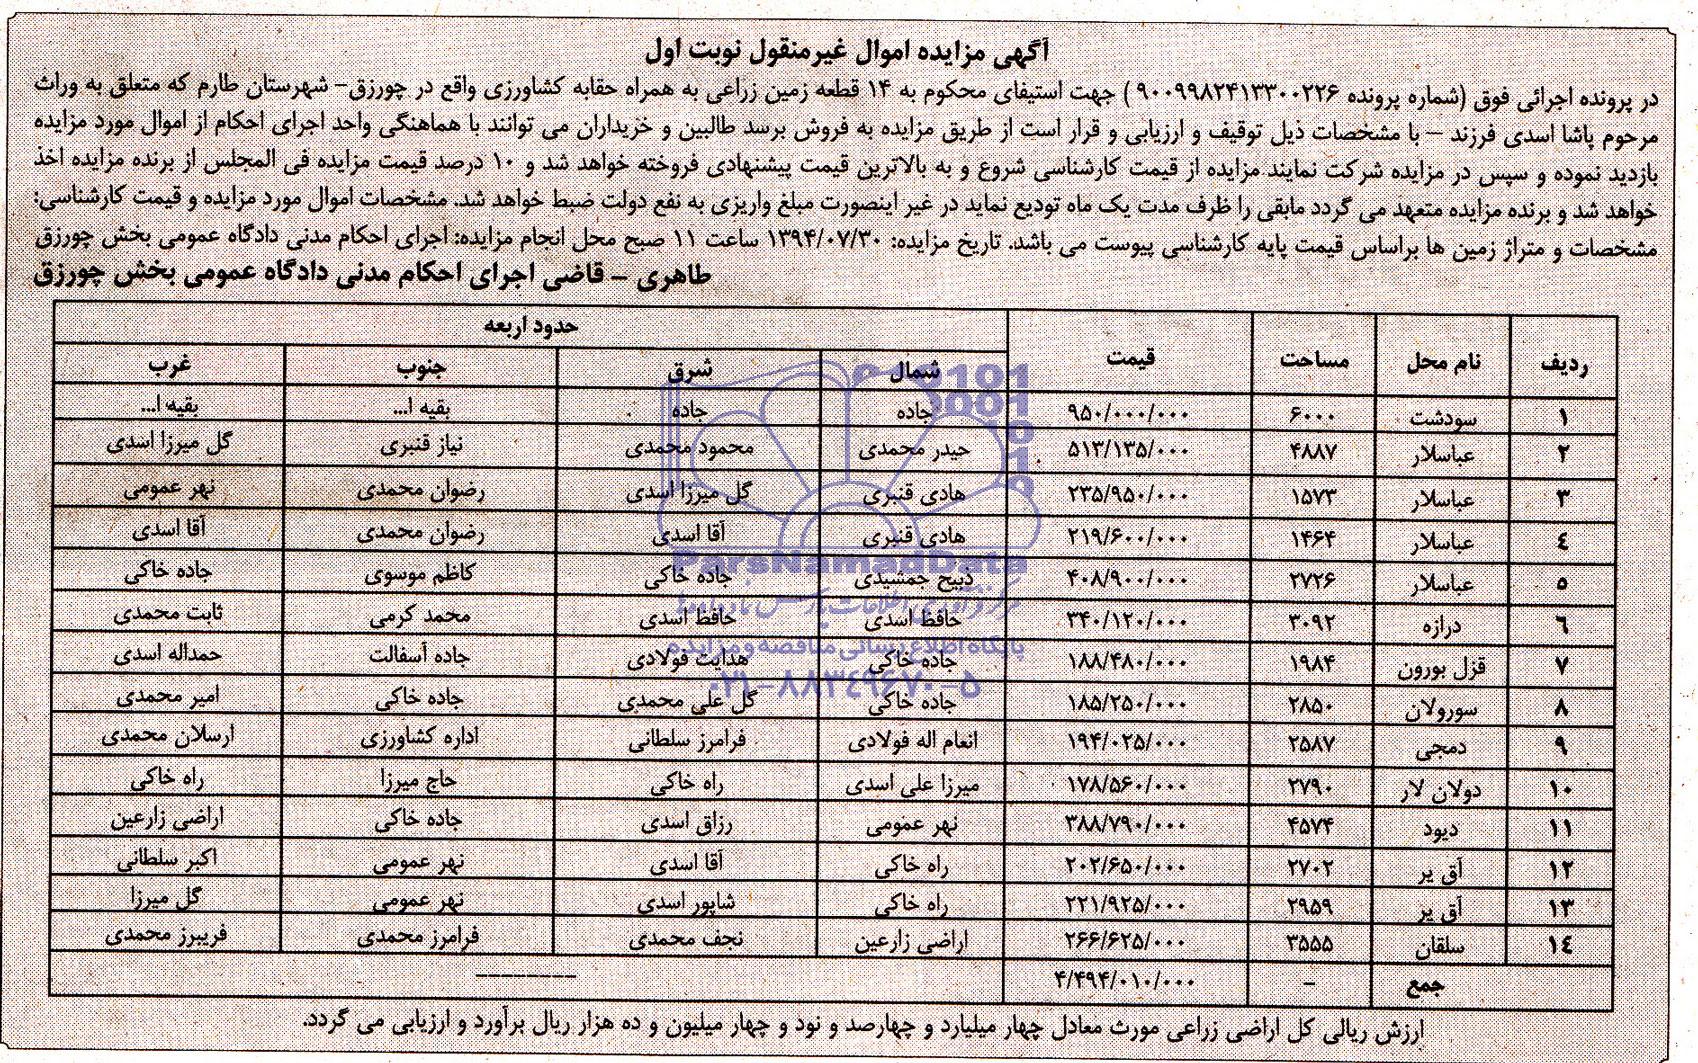 آگهی مزایده اموال غیرمنقول نوبت اول
در پرونده اجرائی فوق (شماره پرونده ۹۰۰۹۹۸۲۴۱۳۳۰۰۲۲۶) جهت استیفای محکوم به ۱۴ قطعه زمین زراعی به همراه حقابه کشاورزی واقع در چورزق- شهرستان طارم که متعلق به وراث
مرحوم پاشا اسدی فرزند – با مشخصات ذیل توقیف و ارزیابی و قرار است از طریق مزایده به فروش برسد طالبین و خریداران می توانند با هماهنگی واحد اجرای احکام از اموال مورد مزایده
بازدید نموده و سپس در مزایده شرکت نمایند مزایده از قیمت کارشناسی شروع و به بالاترین قیمت پیشنهادی فروخته خواهد شد و ۱۰ درصد قیمت مزایده فی المجلس از برنده مزایده اخذ
خواهد شد و برنده مزایده متعهد می گردد مابقی را ظرف مدت یک ماه تودیع نماید در غیر اینصورت مبلغ واریزی به نفع دولت ضبط خواهد شد. مشخصات اموال مورد مزایده و قیمت کارشناسی:
مشخصات و متراژ زمین ها براساس قیمت پایه کارشناسی پیوست می باشد. تاریخ مزایده: ۱۳۹۴/۰۷/۳۰ ساعت ۱۱ صبح محل انجام مزایده: اجرای احکام مدنی دادگاه عمومی بخش چورزق
طاهری – قاضی اجرای احکام مدنی دادگاه عمومی بخش چورزق
ردیف نام محل مساحت قیمت حدود اربعه
شمال شرق جنوب غرب
۱ سودشت ۶۰۰۰ ۹۵۰/۰۰۰/۰۰۰ جاده جاده بقیه ا... بقیه ا...
۲ عباسلار ۴۸۸۷ ۵۱۳/۱۳۵/۰۰۰ حیدر محمدی محمود محمدی نیاز قنبری گل میرزا اسدی
۳ عباسلار ۱۵۷۳ ۲۳۵/۹۵۰/۰۰۰ هادی قنبری گل میرزا اسدی رضوان محمدی نهر عمومی
۴ عباسلار ۱۴۶۴ ۲۱۹/۶۰۰/۰۰۰ هادی قنبری آقا اسدی رضوان محمدی آقا اسدی
۵ عباسلار ۲۷۲۶ ۴۰۸/۹۰۰/۰۰۰ ذبیح جمشیدی جاده خاکی کاظم موسوی جاده خاکی
۶ درازه ۳۰۹۲ ۳۴۰/۱۲۰/۰۰۰ حافظ اسدی حافظ اسدی محمد کرمی ثابت محمدی
۷ قزل بورون ۱۹۸۴ ۱۸۸/۴۸۰/۰۰۰ جاده خاکی هدایت فولادی جاده آسفالت حمداله اسدی
۸ سورولان ۲۸۵۰ ۱۸۵/۲۵۰/۰۰۰ جاده خاکی گل علی محمدی جاده خاکی امیر محمدی
۹ دمجی ۲۵۸۷ ۱۹۴/۰۲۵/۰۰۰ انعام اله فولادی فرامرز سلطانی اداره کشاورزی ارسلان محمدی
۱۰ دولان لار ۲۷۹۰ ۱۷۸/۵۶۰/۰۰۰ میرزا علی اسدی راه خاکی حاج میرزا راه خاکی
۱۱ دیود ۴۵۷۴ ۳۸۸/۷۹۰/۰۰۰ نهر عمومی رزاق اسدی جاده خاکی اراضی زارعین
۱۲ آق یر ۲۷۰۲ ۲۰۲/۶۵۰/۰۰۰ راه خاکی آقا اسدی نهر عمومی اکبر سلطانی
۱۳ آق یر ۲۹۵۹ ۲۲۱/۹۲۵/۰۰۰ راه خاکی شاپور اسدی نهر عمومی گل میرزا
۱۴ سلقان ۳۵۵۵ ۲۶۶/۶۲۵/۰۰۰ اراضی زارعین نجف محمدی فرامرز محمدی فریبرز محمدی
جمع – ۴/۴۹۴/۰۱۰/۰۰۰ --------
ارزش ریالی کل اراضی زراعی مورث معادل چهار میلیارد و چهارصد و نود و چهار میلیون و ده هزار ریال برآورد و ارزیابی می گردد.
ParsNamadData
مرکز فرآوری اطلاعات پارس نماد داده ها
پایگاه اطلاع رسانی مناقصه و مزایده
۰۲۱-۸۸۳۴۹۶۷۰-۵